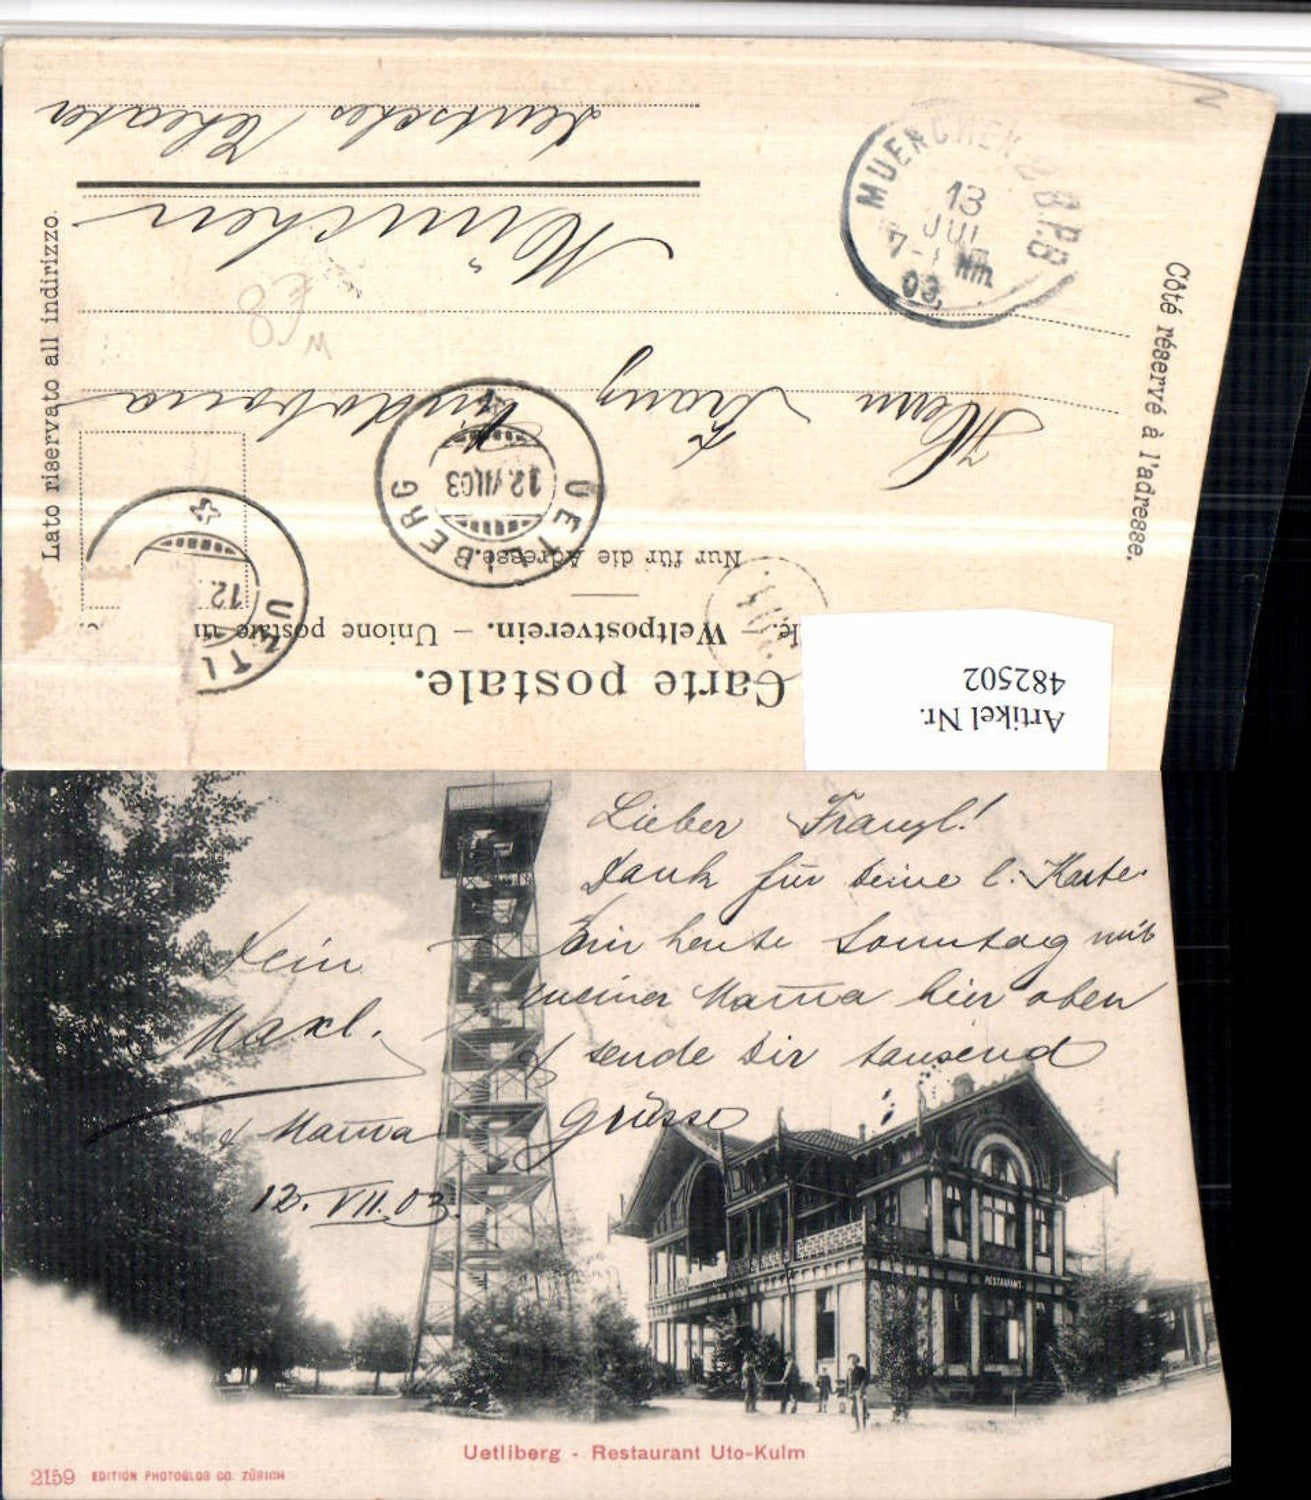 Carte postale.
Weltpostverein. – Unione postale u
Nur für die Adresse.
Côté réservé à l'adresse.
Lato riservato all indirizzo.
Herrn Franz Vindobona
München
Deutsches Theater
UETLIBERG
12.VII.03
UETLI
12.
MUENCHEN 2 B.P.B
13
JUL
7-
Nm
03
€8
Artikel Nr.
482502
Lieber Franzl!
Dank für Deine l. Karte.
Bin heute Sonntag mit
meiner Mama hier oben
& sende Dir tausend
Grüsse
Dein
Maxl.
& Mama
12. VII. 03.
RESTAURANT
Uetliberg - Restaurant Uto-Kulm
2159 EDITION PHOTOGLOB CO. ZÜRICH